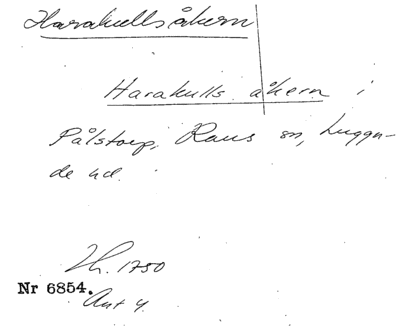 Harakullsåkern
Harakulls åkern i
Pålstorp, Raus sn, Luggu-
de hd.
Lh. 1750
Nr 6854.
Akt 4.